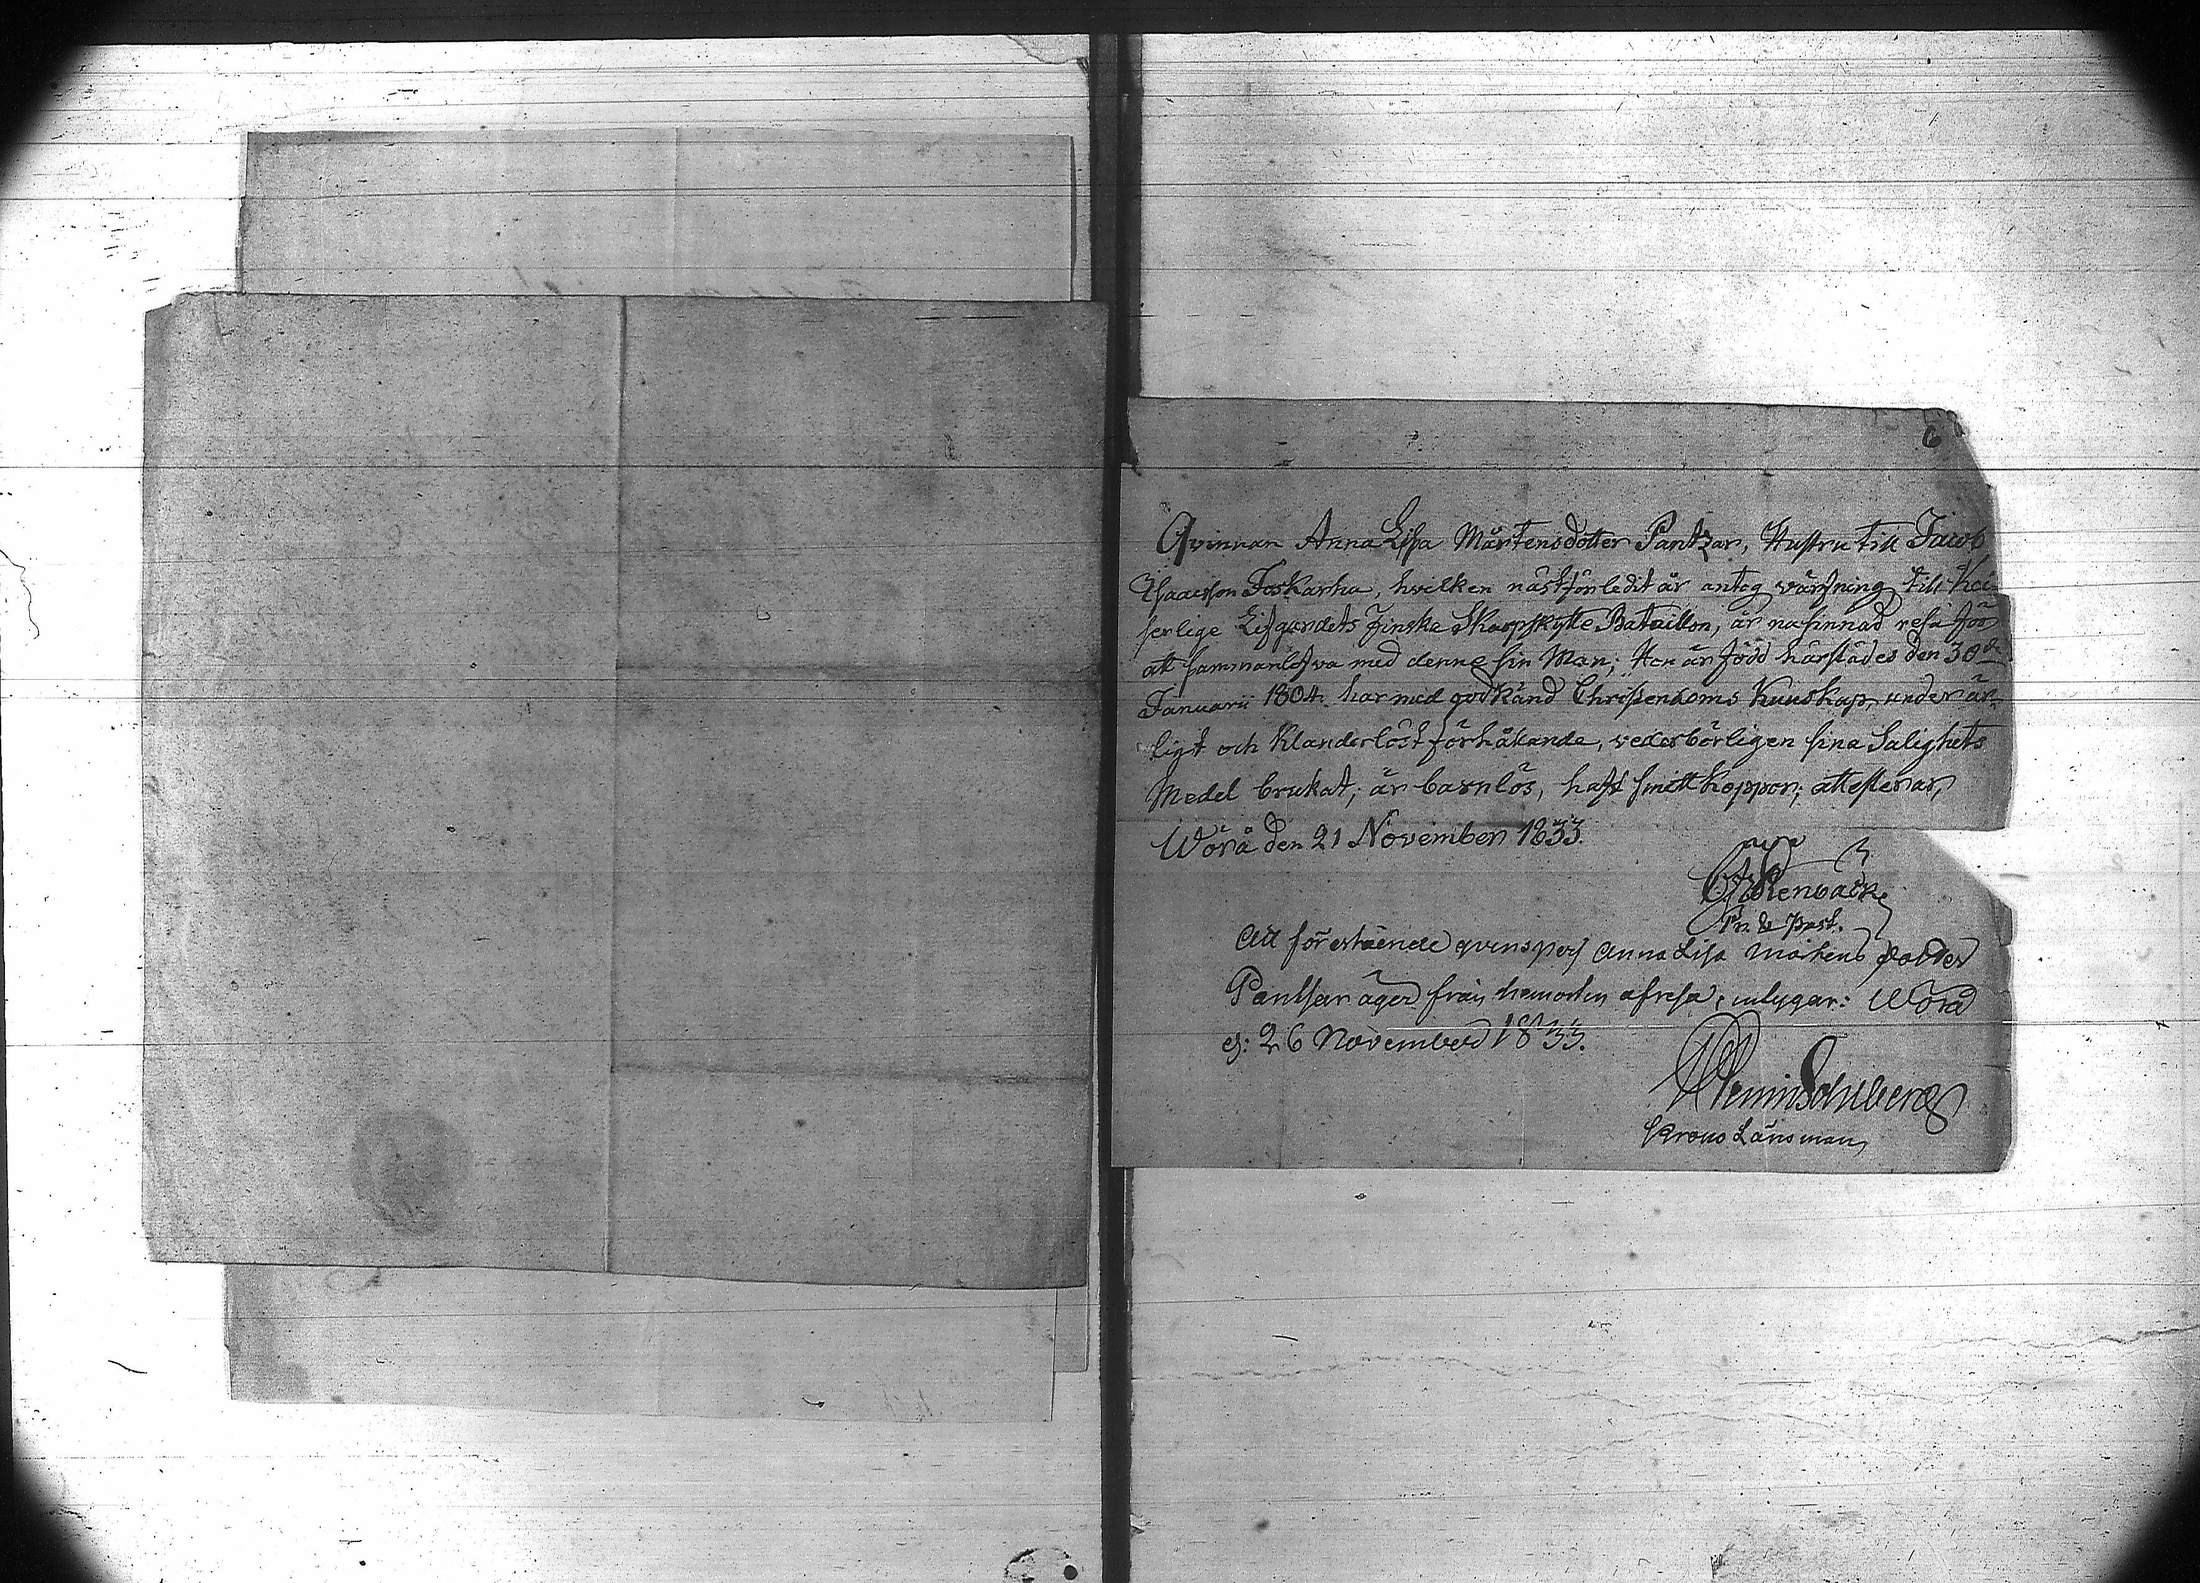 6
Qvinnan Anna Lisa Mårtensdotter Pantzar, Hustru till Jacob
Isaacsson Foskarha, hvilken nästförledit år antog värfning till Kei
serlige Lifgardets Finska Skarpskytte Bataillon, är nasinnad resa för
att sammanlefva med denne sin Man; Hon är född härstädes den 30de
Januarii 1804. har med godkänd Christendoms Kunskap, under är¬
ligt och Klanderlöst förhållande, vederbörligen sina Salighets
Medel brukat; är barnlös, haft smittkoppor; attesterar,
Wörå den 21 November 1833.
Pr. & Past.
Att förestående qvinspers Anna Lisa Mårtens dotter
Pantsar äger från hemorten afresa, intygar: Wörå
d: 26 November 1833.
Krono Länsman